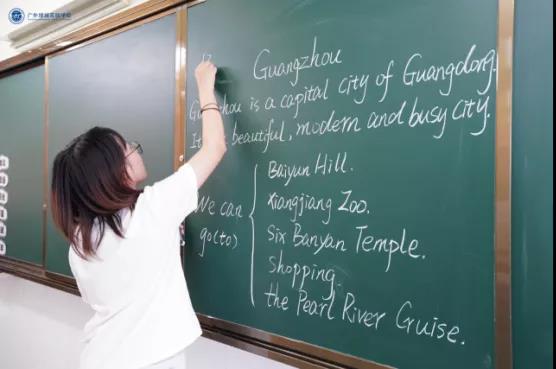 Guangzhou
is a capital city of Guangdong.
beautiful, modern and busy city.
We can
go(to)
Baiyun Hill.
Xiangjiang Zoo.
Six Banyan Temple.
Shopping.
the Pearl River Cruise.